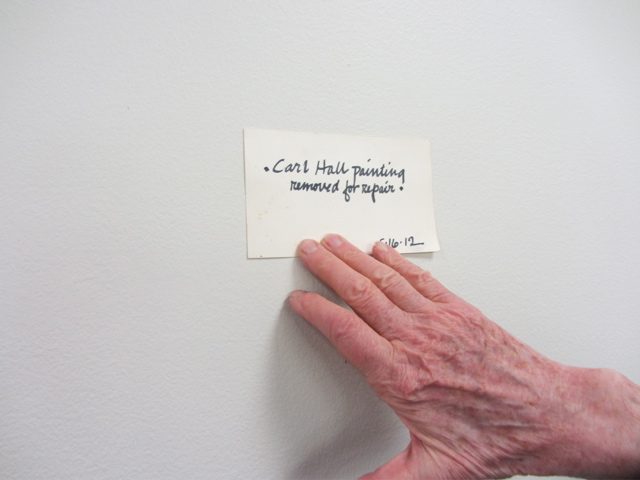 • Carl Hall painting
removed for repair •
5·16·12